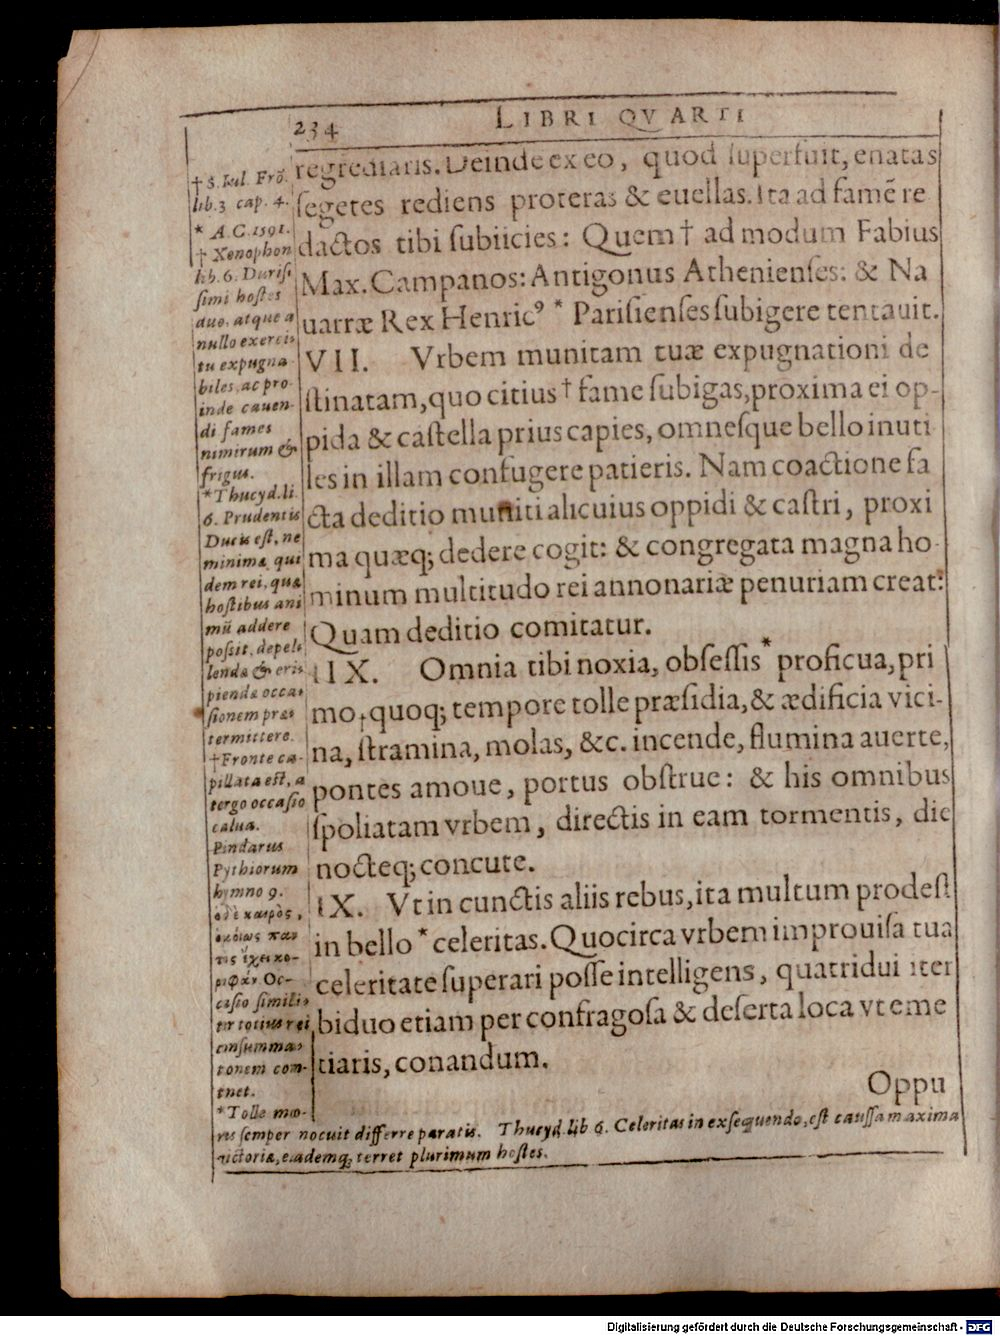 234 LIBRI QVARTI
regrediaris. Deinde ex eo, quod superfuit, enatas
segetes rediens proteras & euellas. Ita ad famē re
dactos tibi subiicies: Quem † ad modum Fabius
Max. Campanos: Antigonus Athenienses: & Na
uarræ Rex Henricꝰ * Parisienses subigere tentauit.
VII. Vrbem munitam tuæ expugnationi de
stinatam, quo citius † fame subigas, proxima ei op-
pida & castella prius capies, omnesque bello inuti
les in illam confugere patieris. Nam coactione fa
cta deditio muniti alicuius oppidi & castri, proxi
ma quæq; dedere cogit: & congregata magna ho-
minum multitudo rei annonariæ penuriam creat:
Quam deditio comitatur.
IIX. Omnia tibi noxia, obsessis * proficua, pri
mo, quoq; tempore tolle præsidia, & ædificia vici-
na, stramina, molas, &c. incende, flumina auerte,
pontes amoue, portus obstrue: & his omnibus
spoliatam vrbem, directis in eam tormentis, die
nocteq; concute.
IX. Vt in cunctis aliis rebus, ita multum prodest
in bello * celeritas. Quocirca vrbem improuisa tua
celeritate superari posse intelligens, quatridui iter
biduo etiam per confragosa & deserta loca vt eme
tiaris, conandum.
Oppu
† S. Iul. Frō.
lib. 3 cap. 4.
* A. C. 1591.
† Xenophon
lib. 6. Durisi
simi hostes
duo, atque a
nullo exerci
tu expugna
biles, ac pro-
inde cauen-
di fames
nimirum &
frigus.
* Thucyd. li.
6. Prudentis
Ducis est, ne
minima qui
dem rei, quæ
hostibus ani
mū addere
possit, depel
lenda & eri
pienda occa
sionem præ
termittere.
† Fronte ca-
pillata est, a
tergo occasio
calua.
Pindarus
Pythiorum
hymno 9.
ὁ δὲ καιρὸς,
ὁμοίως παν
τὸς ἔχει κο-
ρυφάν Oc-
casio simili
ter totius rei
consumma
tionem con-
tinet.
* Tolle mo-
ras semper nocuit differre paratis. Thucyd. lib 6. Celeritas in exsequendo, est caussa maxima
victoriæ, eademq; terret plurimum hostes.
Digitalisierung gefördert durch die Deutsche Forschungsgemeinschaft - DFG